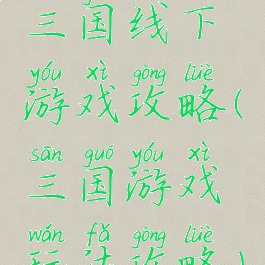 三国线下
yóu xì gōng lüè
游戏攻略(
sān guó yóu xì
三国游戏
wán fǎ gōng lüè
玩法攻略)